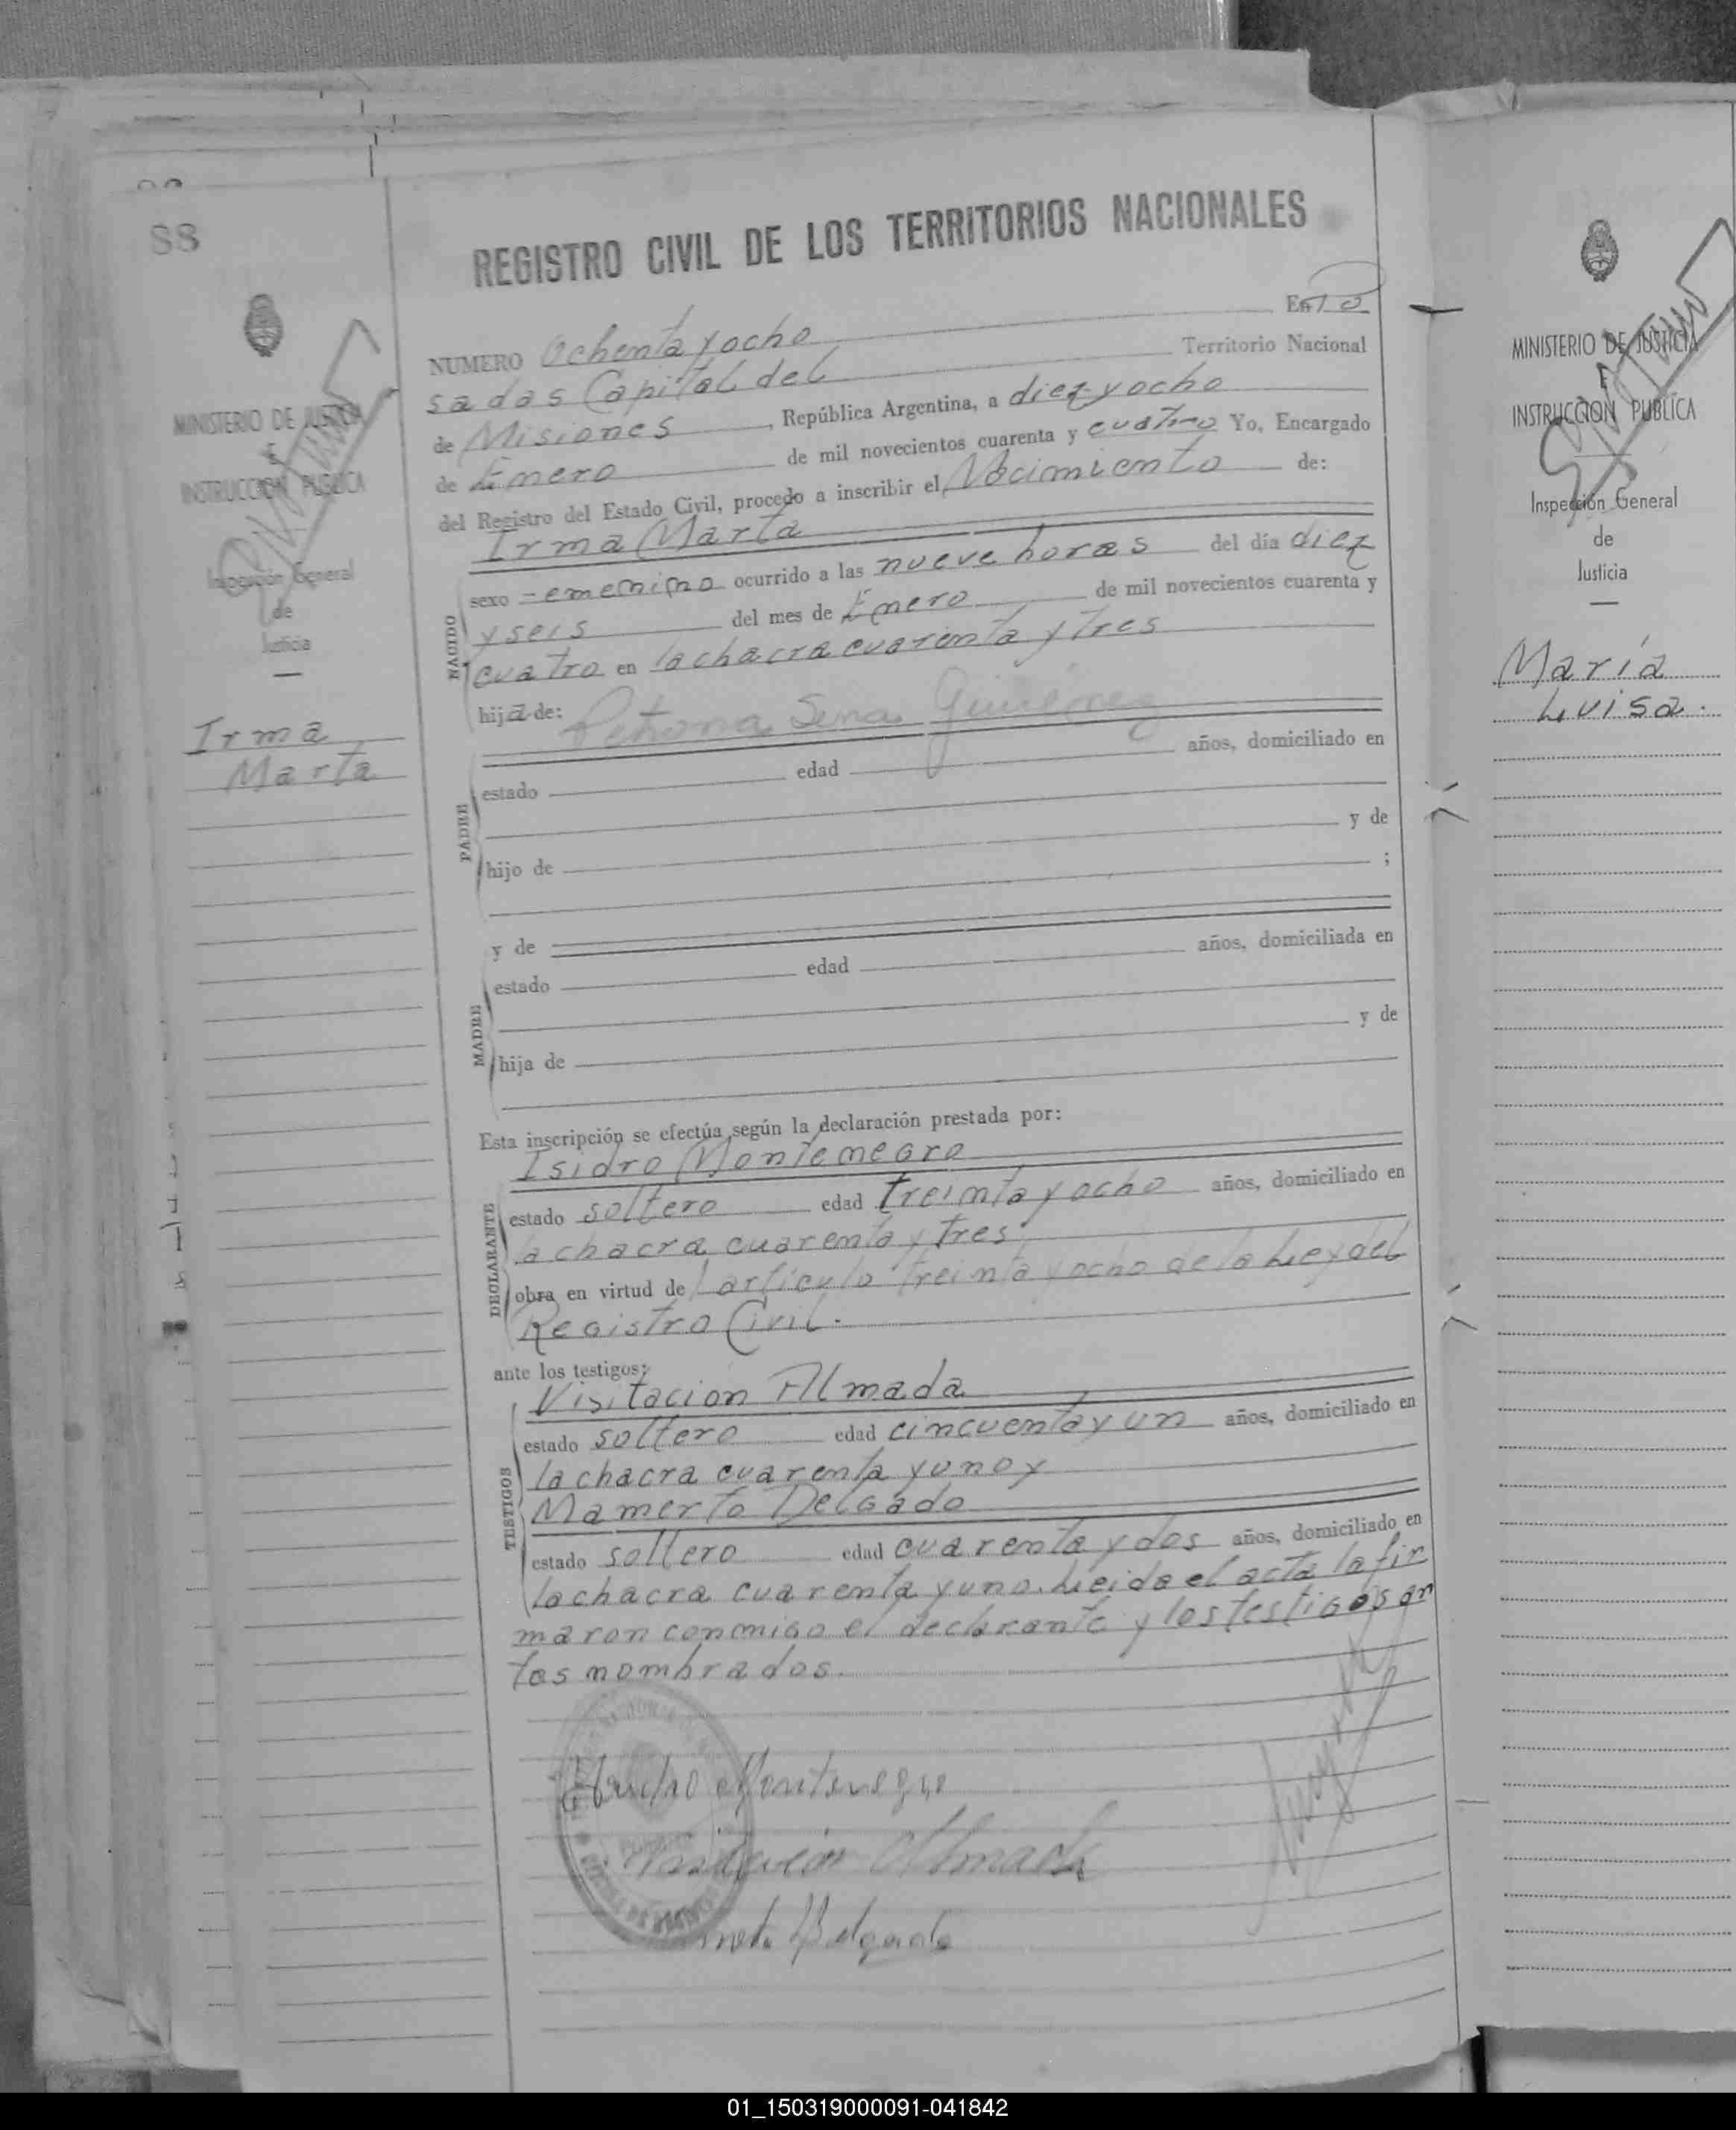 88
MINISTERIO DE JUSTICIA
E
INSTRUCCION PUBLICA
Inspección General
de
Justicia
Irma
Marta
REGISTRO CIVIL DE LOS TERRITORIOS NACIONALES
NUMERO Ochenta y ocho En Po
sadas Capital del Territorio Nacional
de Misiones, República Argentina, a diez y ocho
de Enero de mil novecientos cuarenta y cuatro Yo, Encargado
del Registro del Estado Civil, procedo a inscribir el Nacimiento de:
Irma Marta
NACIDO
sexo femenino ocurrido a las nueve horas del día diez
y seis del mes de Enero de mil novecientos cuarenta y
cuatro en la chacra cuarenta y tres
hija de: Petrona Gimenez
PADRE
estado edad años, domiciliado en
hijo de y de
;
y de
MADRE
estado edad años, domiciliada en
hija de y de
Esta inscripción se efectúa según la declaración prestada por:
Isidro Montenegro
DECLARANTE
estado soltero edad treinta y ocho años, domiciliado en
la chacra cuarenta y tres
obra en virtud del artículo treinta y ocho de la Ley del
Registro Civil.
ante los testigos:
Visitacion Almada
TESTIGOS
estado soltero edad cincuenta y un años, domiciliado en
la chacra cuarenta y uno y
Mamerto Delgado
estado soltero edad cuarenta y dos años, domiciliado en
la chacra cuarenta y uno. Leida el acta la fir
maron conmigo el declarante y los testigos an
tes nombrados.
Montenegro
Almada
Delgado
MINISTERIO DE JUSTICIA
E
INSTRUCCION PUBLICA
Inspección General
de
Justicia
María
Luisa.
01_150319000091-041842